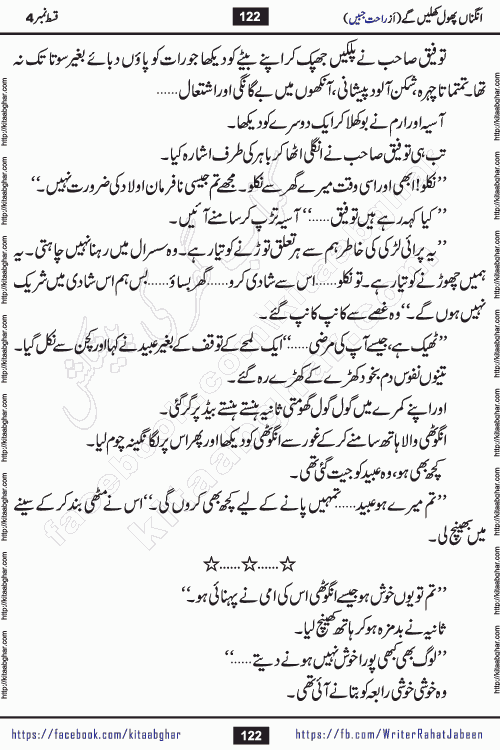 انگناں پھول کھلیں گے (از راحت جبیں)
122
قسط نمبر 4
توفیق صاحب نے پلکیں جھپک کر اپنے بیٹے کو دیکھا جو رات کو پاؤں دبائے بغیر سوتا تک نہ
تھا۔ تمتماتا چہرہ، شکن آلود پیشانی، آنکھوں میں بے گانگی اور اشتعال......
آسیہ اور ارم نے بوکھلا کر ایک دوسرے کو دیکھا۔
تب ہی توفیق صاحب نے انگلی اٹھا کر باہر کی طرف اشارہ کیا۔
’’نکلو! ابھی اور اسی وقت میرے گھر سے نکلو۔ مجھے تم جیسی نافرمان اولاد کی ضرورت نہیں۔‘‘
’’کیا کہہ رہے ہیں توفیق......‘‘ آسیہ تڑپ کر سامنے آئیں۔
’’یہ پرائی لڑکی کی خاطر ہم سے ہر تعلق توڑنے کو تیار ہے۔ وہ سسرال میں رہنا نہیں چاہتی۔ یہ
ہمیں چھوڑنے کو تیار ہے۔ تو نکلو...... اس سے شادی کرو...... گھر بساؤ...... بس ہم اس شادی میں شریک
نہیں ہوں گے۔‘‘ وہ غصے سے کانپ کانپ گئے۔
’’ٹھیک ہے، جیسے آپ کی مرضی......‘‘ ایک لمحے کے توقف کے بغیر عبید نے کہا اور کچن سے نکل گیا۔
تینوں نفوس دم بخود کھڑے کے کھڑے رہ گئے۔
اور اپنے کمرے میں گول گول گھومتی ثانیہ ہنستے ہنستے بیڈ پر گر گئی۔
انگوٹھی والا ہاتھ سامنے کر کے غور سے انگوٹھی کو دیکھا اور پھر اس پر لگا نگینہ چوم لیا۔
کچھ بھی ہو، وہ عبید کو جیت گئی تھی۔
’’تم میرے ہو عبید...... تمہیں پانے کے لیے کچھ بھی کروں گی۔‘‘ اس نے مٹھی بند کر کے سینے
میں بھینچ لی۔
☆......☆......☆
’’تم تو یوں خوش ہو جیسے انگوٹھی اس کی امی نے پہنائی ہو۔‘‘
ثانیہ نے بدمزہ ہو کر ہاتھ کھینچ لیا۔
’’لوگ بھی کبھی پورا خوش نہیں ہونے دیتے......‘‘
وہ خوشی خوشی رابعہ کو بتانے آئی تھی۔
https://facebook.com/kitaabghar
122
https://fb.com/WriterRahatJabeen
http://kitaabghar.com